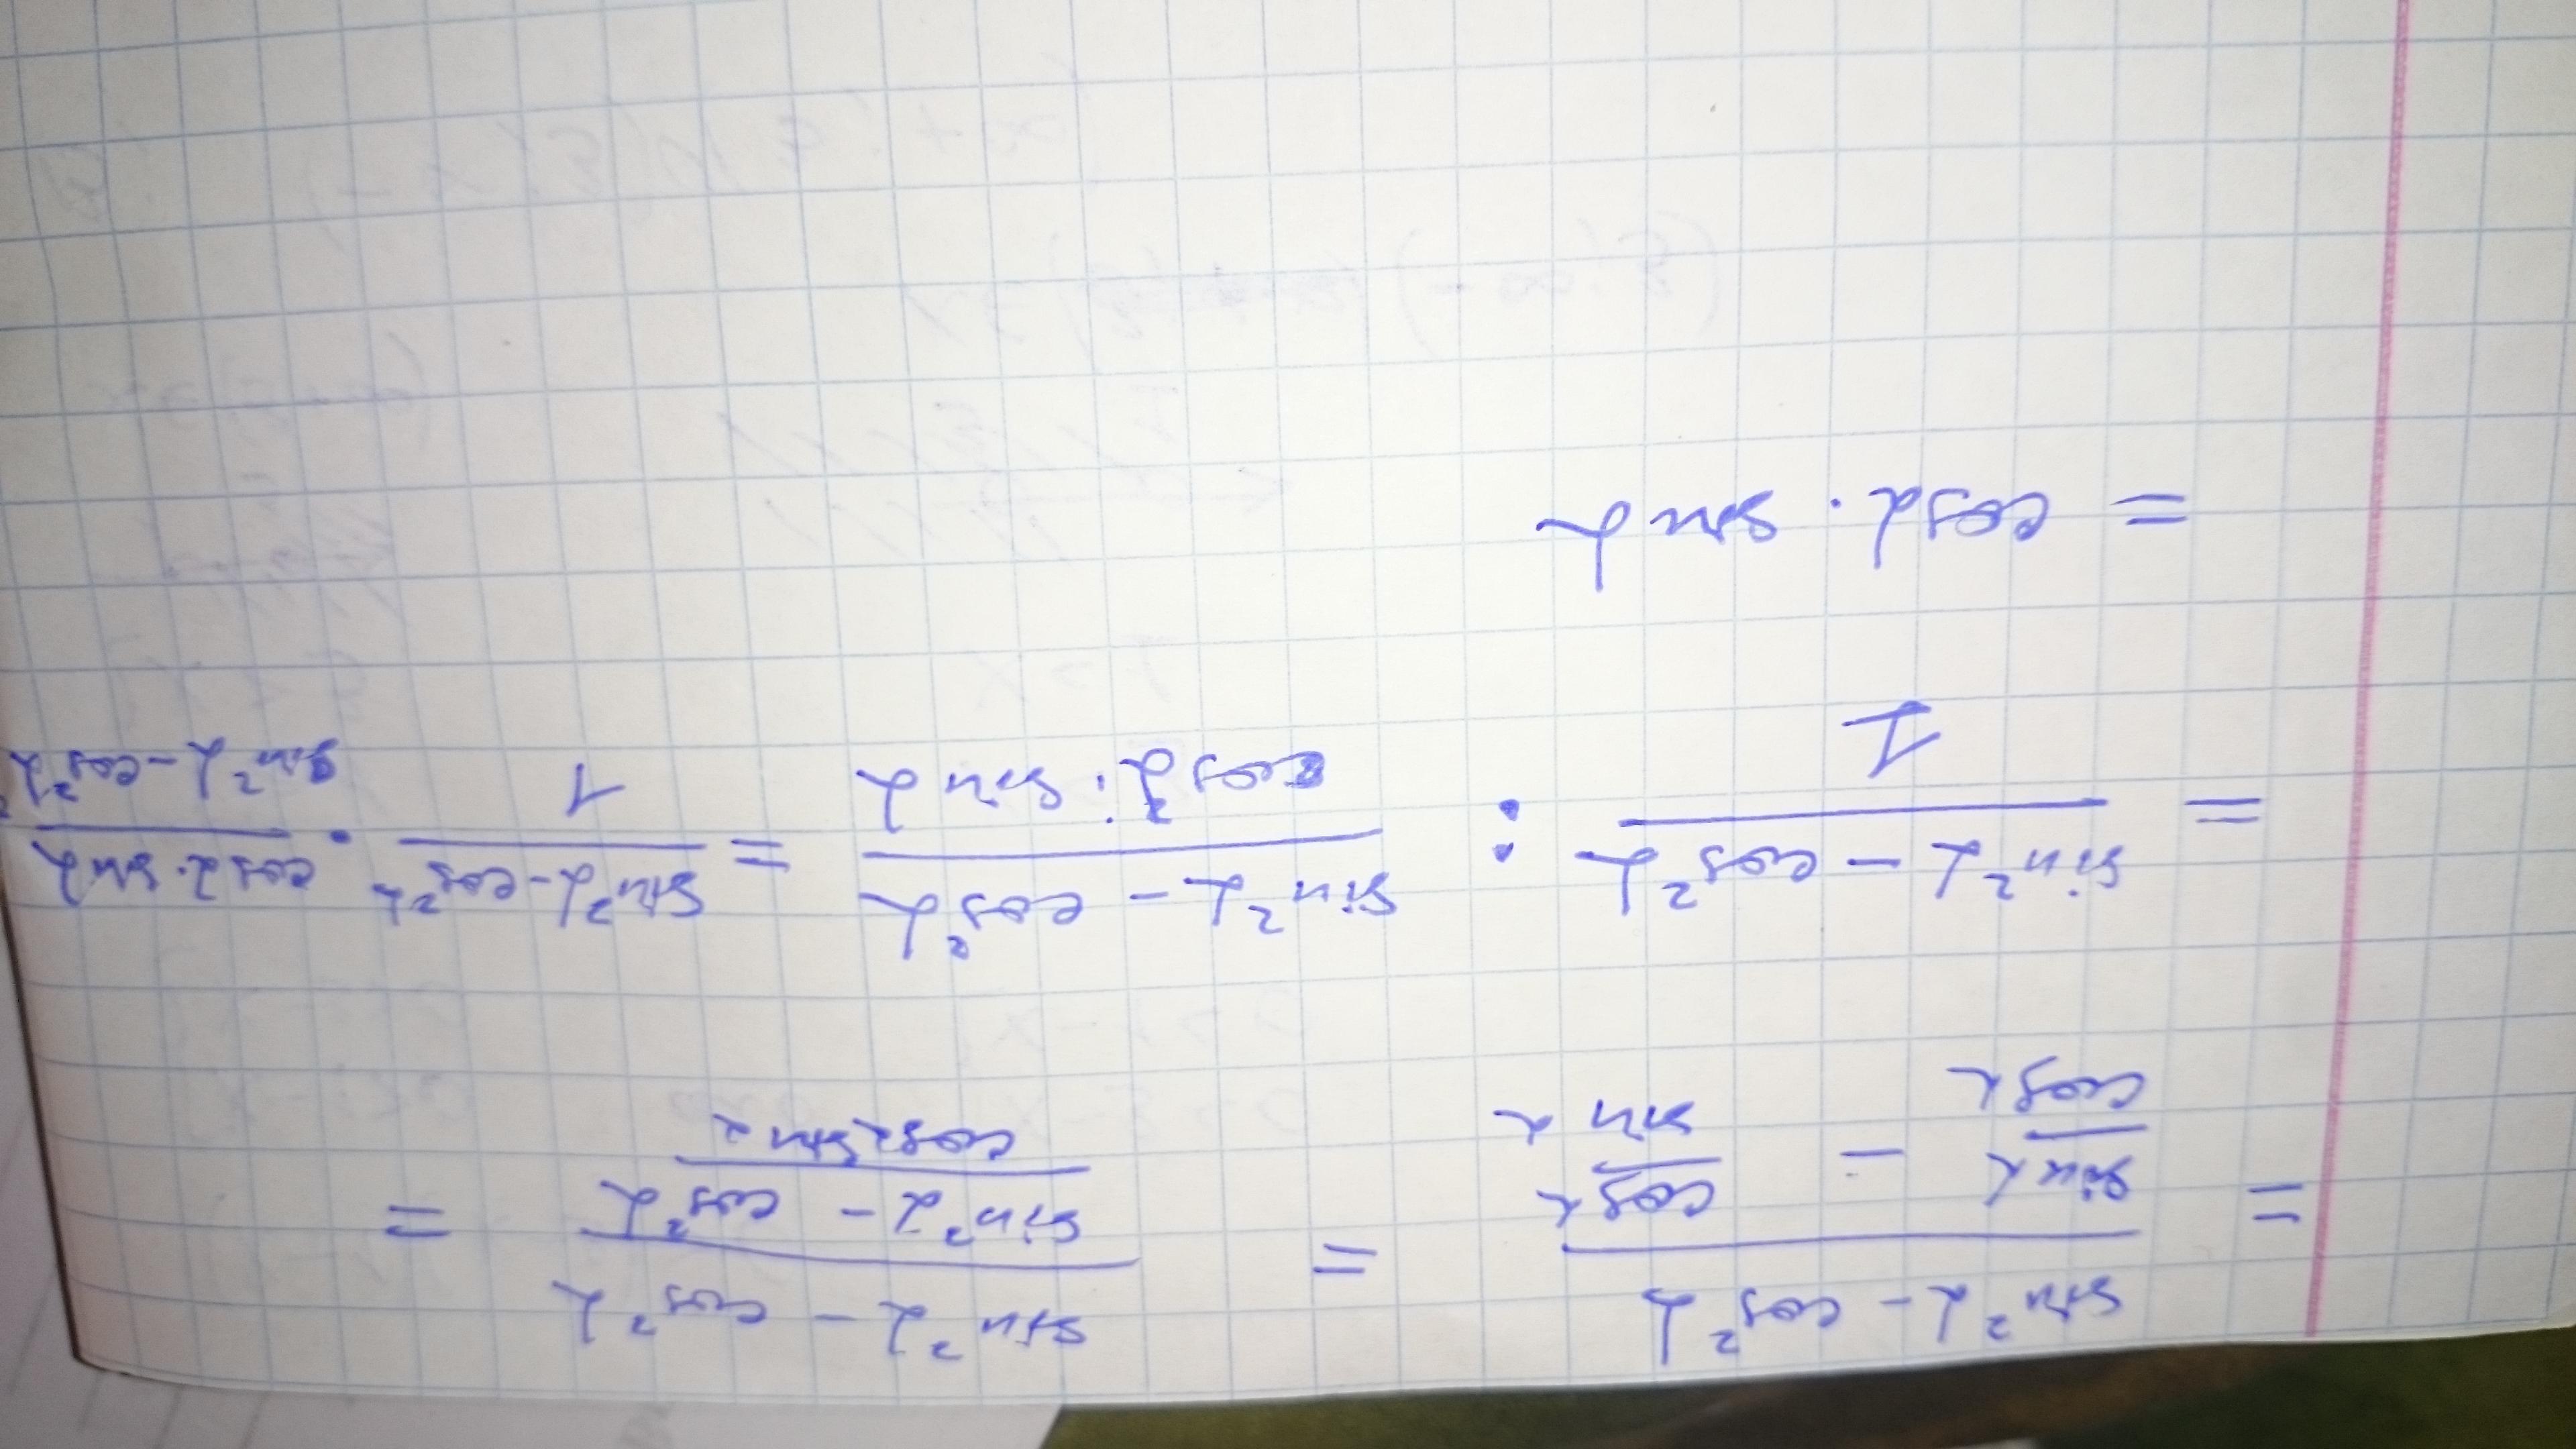 = (sin²α - cos²α)/(sinα/cosα - cosα/sinα) = (sin²α - cos²α)/((sin²α - cos²α)/(cosα sinα)) =
= (sin²α - cos²α)/1 : (sin²α - cos²α)/(cosα · sinα) = (sin²α - cos²α)/1 · (cosα · sinα)/(sin²α - cos²α)
= cosα · sinα